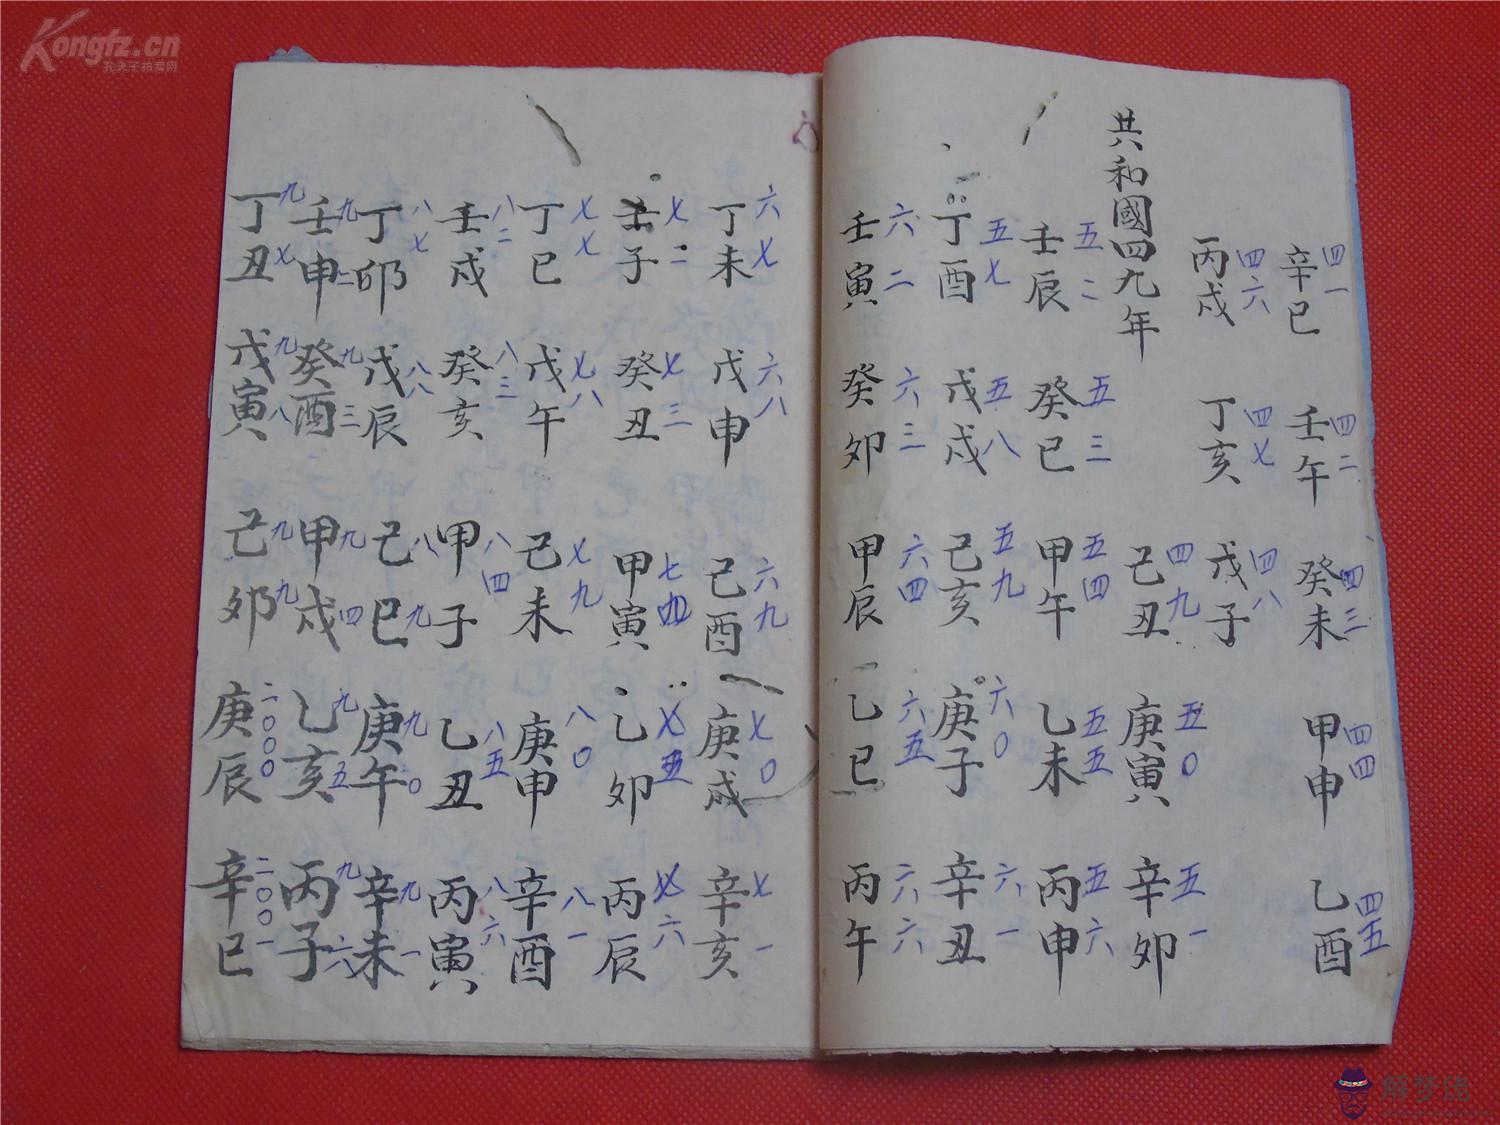 辛巳 四一 壬午 四二 癸未 四三 甲申 四四 乙酉 四五
丙戌 四六 丁亥 四七 戊子 四八
共和國四九年 己丑 四九 庚寅 五〇 辛卯 五一
壬辰 五二 癸巳 五三 甲午 五四 乙未 五五 丙申 五六
丁酉 五七 戊戌 五八 己亥 五九 庚子 六〇 辛丑 六一
壬寅 六二 癸卯 六三 甲辰 六四 乙巳 六五 丙午 六六
丁未 六七 戊申 六八 己酉 六九 庚戌 七〇 辛亥 七一
壬子 七二 癸丑 七三 甲寅 七四 乙卯 七五 丙辰 七六
丁巳 七七 戊午 七八 己未 七九 庚申 八〇 辛酉 八一
壬戌 八二 癸亥 八三 甲子 八四 乙丑 八五 丙寅 八六
丁卯 八七 戊辰 八八 己巳 八九 庚午 九〇 辛未 九一
壬申 九二 癸酉 九三 甲戌 九四 乙亥 九五 丙子 九六
丁丑 九七 戊寅 九八 己卯 九九 庚辰 二〇〇〇 辛巳 二〇〇一
Kongfz.cn
孔夫子拍卖网
解梦佬